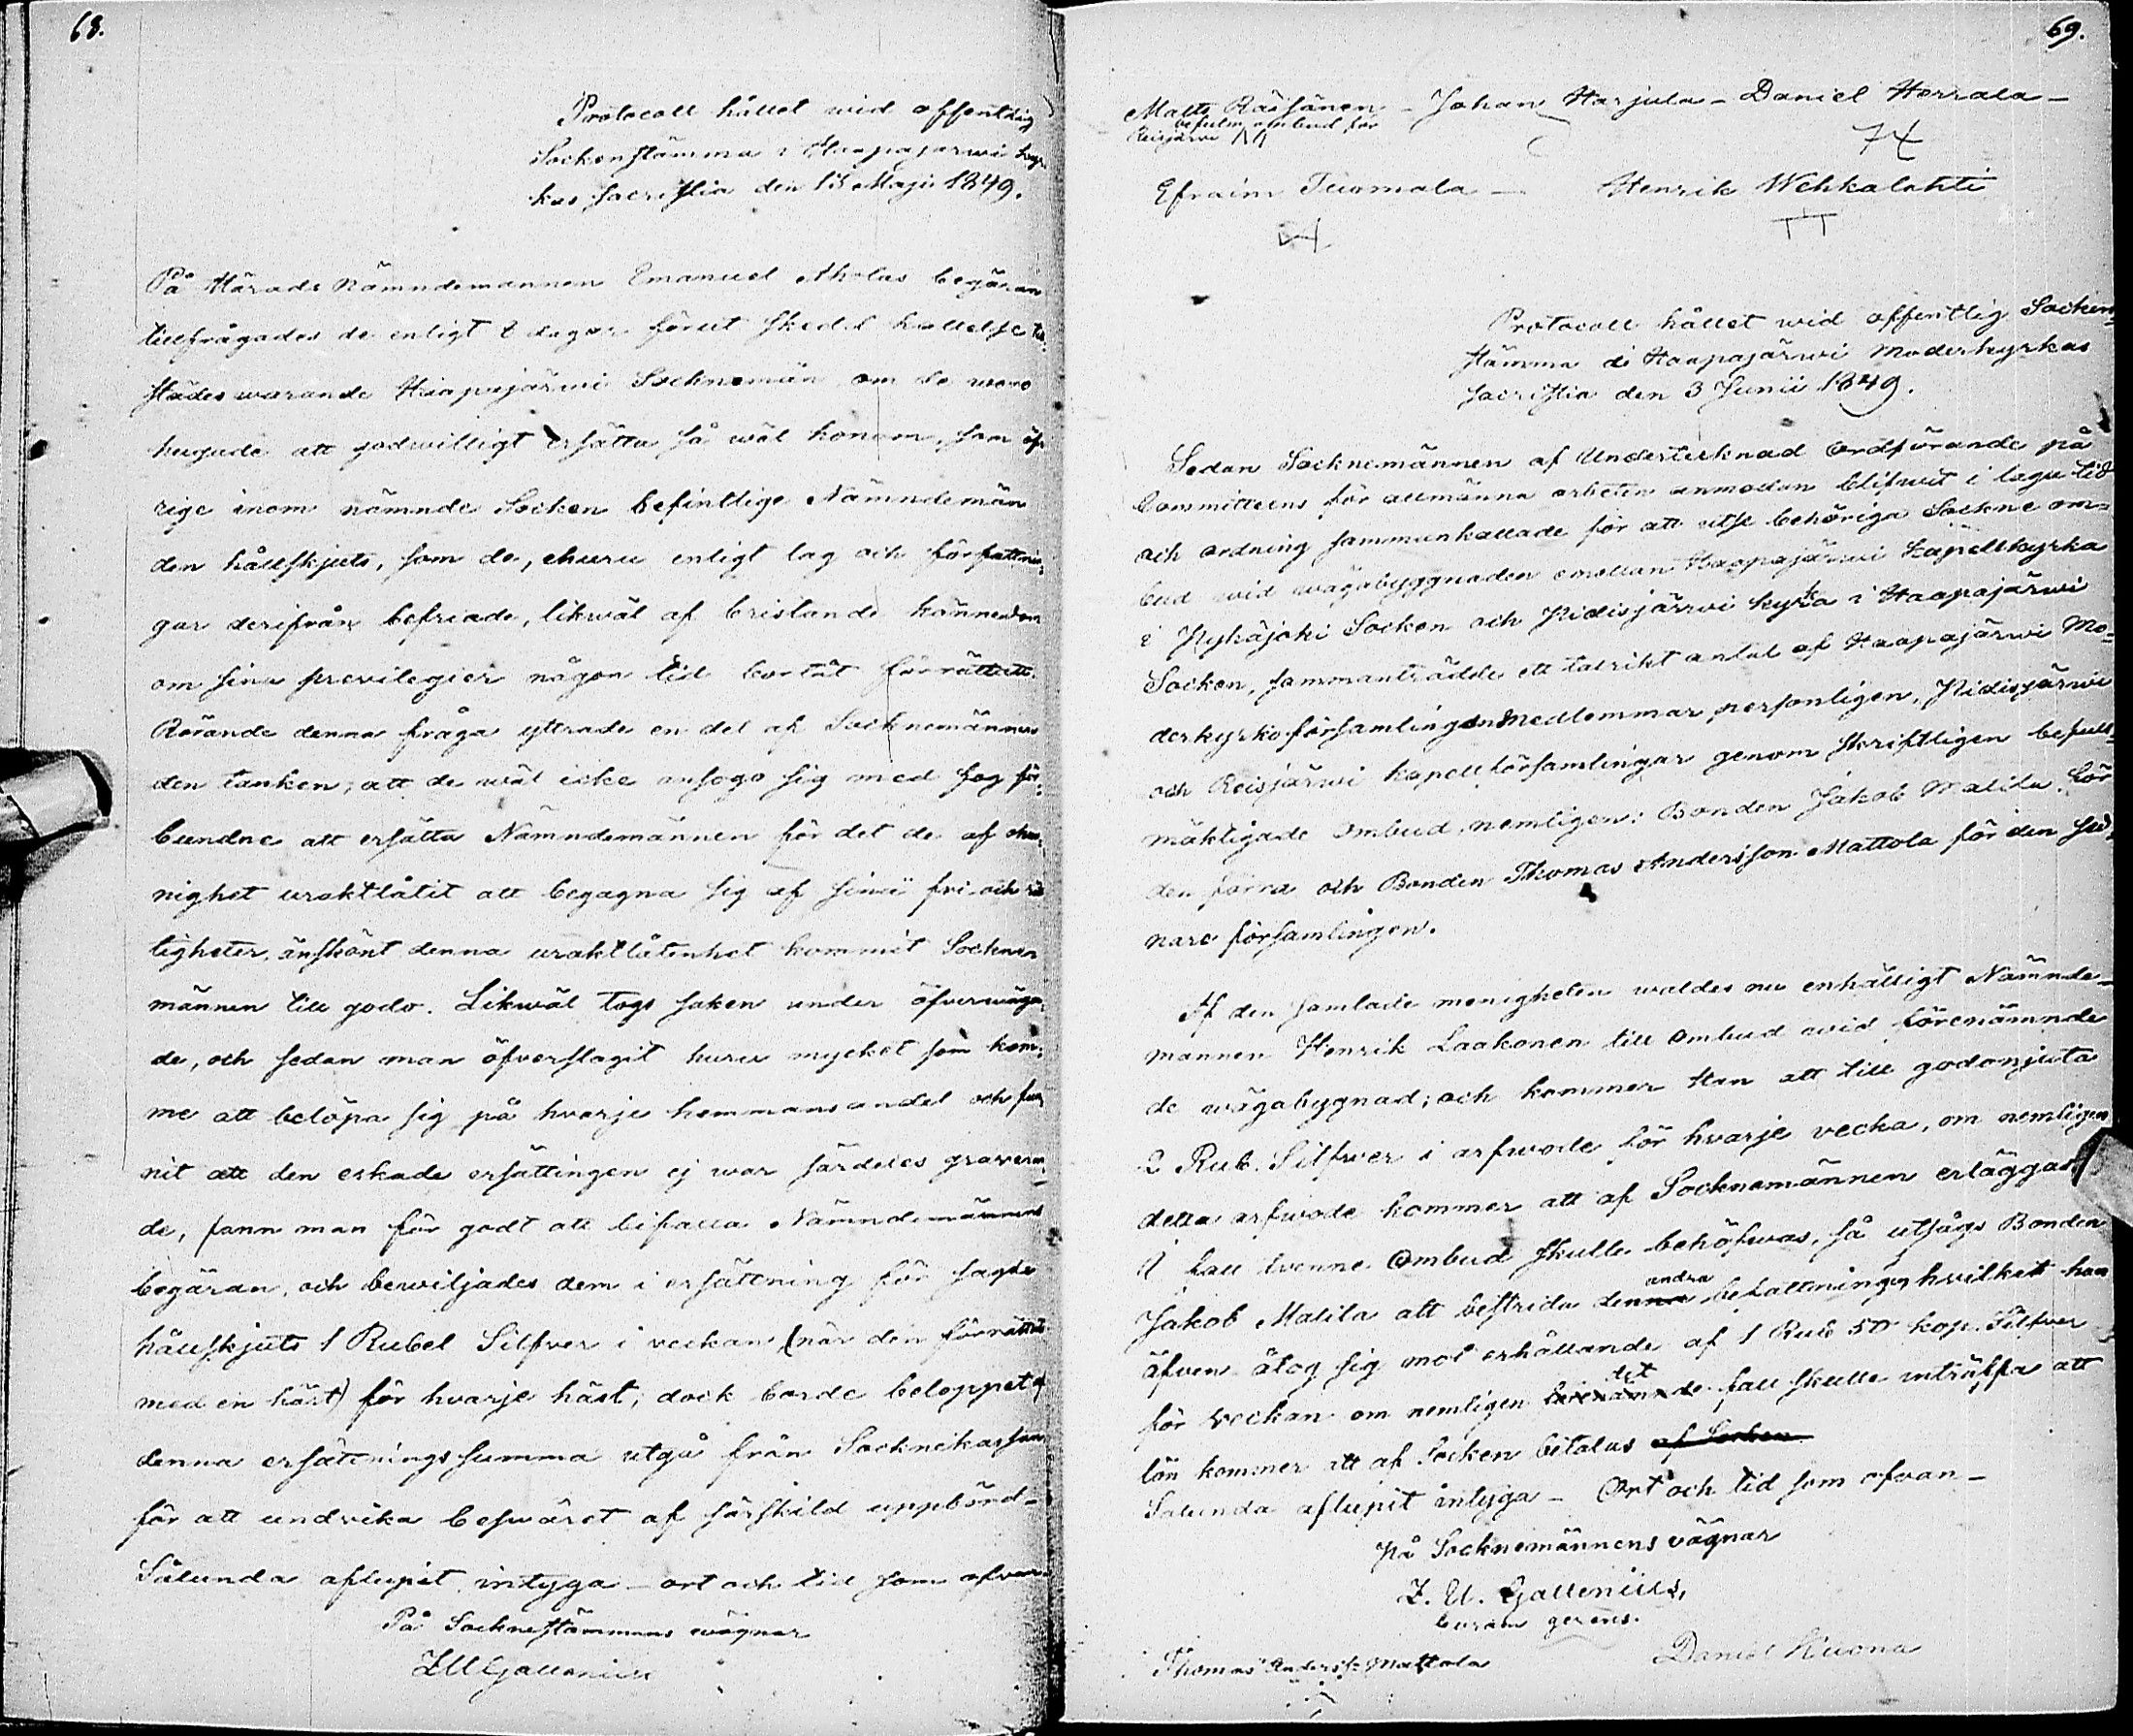 68.
Protocoll hållet wid offentlig
Sockenstämma i Haapajärwi kyr-
kas sacristia den 13 Maji 1849.
På Härads Nämndemannen Emanuel Aholas begäran
tillfrågades de enligt 8 dagar förut skedd kallelse till
städes warande Haapajärwi Socknemän om de woro
hugade att godwilligt ersätta så wäl honom, som öf-
rige inom nämnde Socken befintlige Nämndemän
den hållskjuts, som de, ehuru enligt lag och författnin-
gar derifrån befriade, likwäl af bristande kännedom
om sina previlegier någon tid bortåt förrättat.
Rörande denna fråga yttrade en del af Socknemännen
den tanken, att de wäl icke ansågo sig med fog för-
bundne att ersätta Nämndemännen för det de af oku-
nighet uraktlåtit att begagna sig af sine fri- och rät
tigheter, änskönt denna uraktlåtenhet kommit Sockne
männen till godo. Likwäl togs saken under öfverwäga
de, och sedan man öfverslagit huru mycket som kom-
me att belöpa sig på hvarje hemmansandel och fun
nit att den eskade ersättingen ej war särdeles graveran
de, fann man för godt att bifalla Nämndemännens
begäran, och bewiljades dem i ersättning för sagde
hållskjuts 1 Rubel Silfver i veckan (när den förrättats
med en häst) för hvarje häst, dock borde beloppet af
denna ersättningssumma utgå från Socknekassan
för att undvika beswäret af särskild uppbörd-
Sålunda aflupit, intyga - ort och tid som ofvan
På Socknestämmans wägnar
Z U Gallenius
69.
Matts Räisänen - Johan Harjula - Daniel Herrala -
befulm. ombud för
Reisjärvi
Efraim Tuomala - Henrik Wehkalahti
Protocoll hållet wid offentlig Socken-
stämma i Haapajärwi Moderkyrkas
sacristia den 3 Junii 1849.
Sedan Socknemännen af Undertecknad Ordförande på
Committeens för allmänna arbeten anmodan blifwit i laga tid
och ordning sammankallade för att utse behöriga Sockne om-
bud wid wägabyggnaden emellan Haapajärwi Kapellkyrka
i Pyhäjoki Socken och Pidisjärwi kyrka i Haapajärwi
Socken, sammanträdde ett talrikt antal af Haapajärwi Mo-
derkyrkoförsamlingens Medlemmar personligen, Pidisjärwi
och Reisjärwi kapellförsamlingar genom skriftligen befull-
mäktigade Ombud, nemligen: Bonden Jakob Malila för
den förra och Bonden Thomas Andersson Mattola för den sed-
nare församlingen.
Af den samlade menigheten waldes nu enhälligt Nämnde-
mannen Henrik Laakonen till Ombud wid förenämnde
de wägabygnad; och kommer Han att till godonjuta
2 Rub. Silfwer i arfwode för hvarje vecka, om nemligen
detta arfwode kommer att af Socknemännen erläggas.
I fall twenne Ombud skulle behöfwas, så utsågs Bonden
andra
Jakob Malila att bestrida denna befattning, hvilket han
äfven åtog sig mot erhållande af 1 Rub 50 kop. Silfver
det
för veckan om nemligen förenämnde fall skulle inträffa att
lön kommer att af Socken betalas af Socken
Salunda aflupit intyga - Ort och tid som ofvan -
På Socknemännens vägnar
Z. U. Gallenius,
curam gerens.
Thomas Anderss: Mattola Daniel Kuona